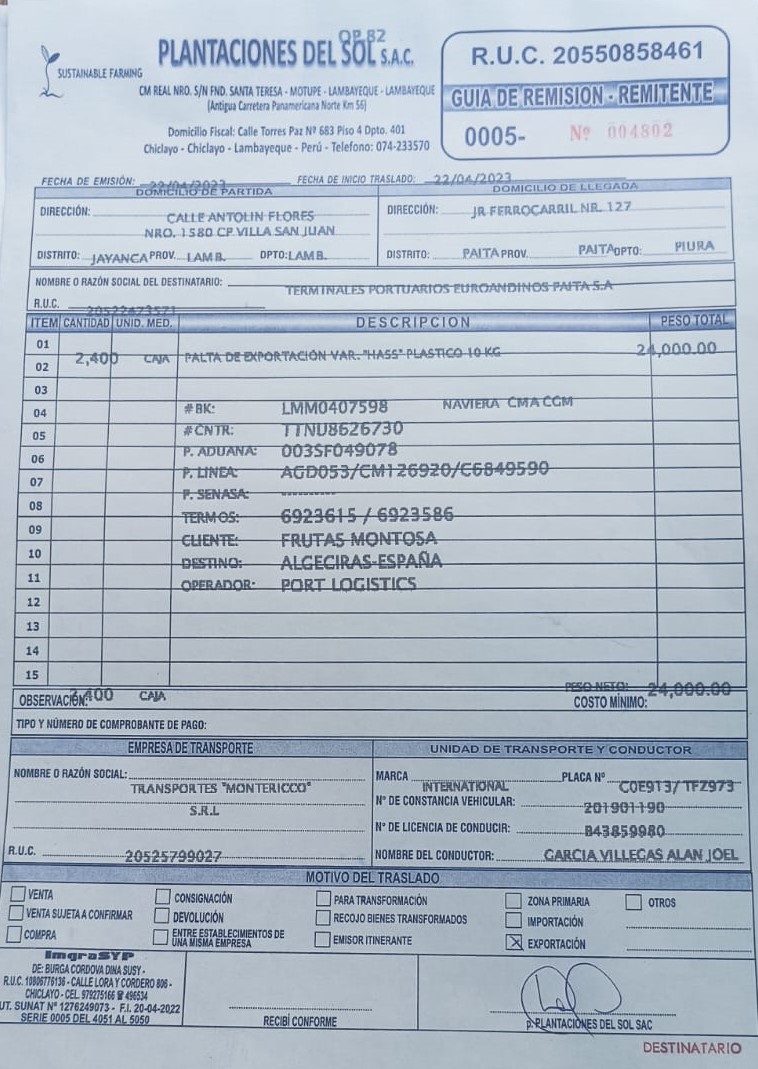 OP.82
PLANTACIONES DEL SOL S.A.C.
SUSTAINABLE FARMING
CM REAL NRO. S/N FND. SANTA TERESA - MOTUPE - LAMBAYEQUE - LAMBAYEQUE
(Antigua Carretera Panamericana Norte Km 56)
Domicilio Fiscal: Calle Torres Paz Nº 683 Piso 4 Dpto. 401
Chiclayo - Chiclayo - Lambayeque - Perú - Telefono: 074-233570
R.U.C. 20550858461
GUIA DE REMISION - REMITENTE
0005- Nº 004802
FECHA DE EMISIÓN: 22/04/2023 FECHA DE INICIO TRASLADO: 22/04/2023
DOMICILIO DE PARTIDA DOMICILIO DE LLEGADA
DIRECCIÓN: CALLE ANTOLIN FLORES DIRECCIÓN: JR FERROCARRIL NR. 127
NRO. 1580 CP VILLA SAN JUAN
DISTRITO: JAYANCA PROV. LAMB. DPTO: LAMB. DISTRITO: PAITA PROV. PAITA DPTO: PIURA
NOMBRE O RAZÓN SOCIAL DEL DESTINATARIO: TERMINALES PORTUARIOS EUROANDINOS PAITA S.A
R.U.C. 20522473571
ITEM CANTIDAD UNID. MED. DESCRIPCION PESO TOTAL
01
02 2,400 CAJA PALTA DE EXPORTACIÓN VAR. "HASS" PLASTICO 10 KG 24,000.00
03
04 #BK: LMM0407598 NAVIERA CMA CGM
05 #CNTR: TTNU8626730
06 P. ADUANA: 003SF049078
07 P. LINEA: AGD053/CM126920/C6849590
P. SENASA: ----------
08 TERMOS: 6923615 / 6923586
09 CLIENTE: FRUTAS MONTOSA
10 DESTINO: ALGECIRAS-ESPAÑA
11 OPERADOR: PORT LOGISTICS
12
13
14
15
OBSERVACIÓN: 2,400 CAJA PESO NETO: 24,000.00
COSTO MÍNIMO:
TIPO Y NÚMERO DE COMPROBANTE DE PAGO:
EMPRESA DE TRANSPORTE UNIDAD DE TRANSPORTE Y CONDUCTOR
NOMBRE O RAZÓN SOCIAL: TRANSPORTES "MONTERICCO"
S.R.L
R.U.C. 20525799027
MARCA INTERNATIONAL PLACA Nº C0E913/ TFZ973
Nº DE CONSTANCIA VEHICULAR: 201901190
Nº DE LICENCIA DE CONDUCIR: B43859980
NOMBRE DEL CONDUCTOR: GARCIA VILLEGAS ALAN JOEL
MOTIVO DEL TRASLADO
VENTA CONSIGNACIÓN PARA TRANSFORMACIÓN ZONA PRIMARIA OTROS
VENTA SUJETA A CONFIRMAR DEVOLUCIÓN RECOJO BIENES TRANSFORMADOS IMPORTACIÓN
COMPRA ENTRE ESTABLECIMIENTOS DE UNA MISMA EMPRESA EMISOR ITINERANTE X EXPORTACIÓN
ImgraSYP
DE: BURGA CORDOVA DINA SUSY -
R.U.C. 10806776136 - CALLE LORA Y CORDERO 806 -
CHICLAYO - CEL. 979275166 ☎ 496534
UT. SUNAT Nº 1276249073 - F.I. 20-04-2022
SERIE 0005 DEL 4051 AL 5050
RECIBÍ CONFORME
p. PLANTACIONES DEL SOL SAC
DESTINATARIO